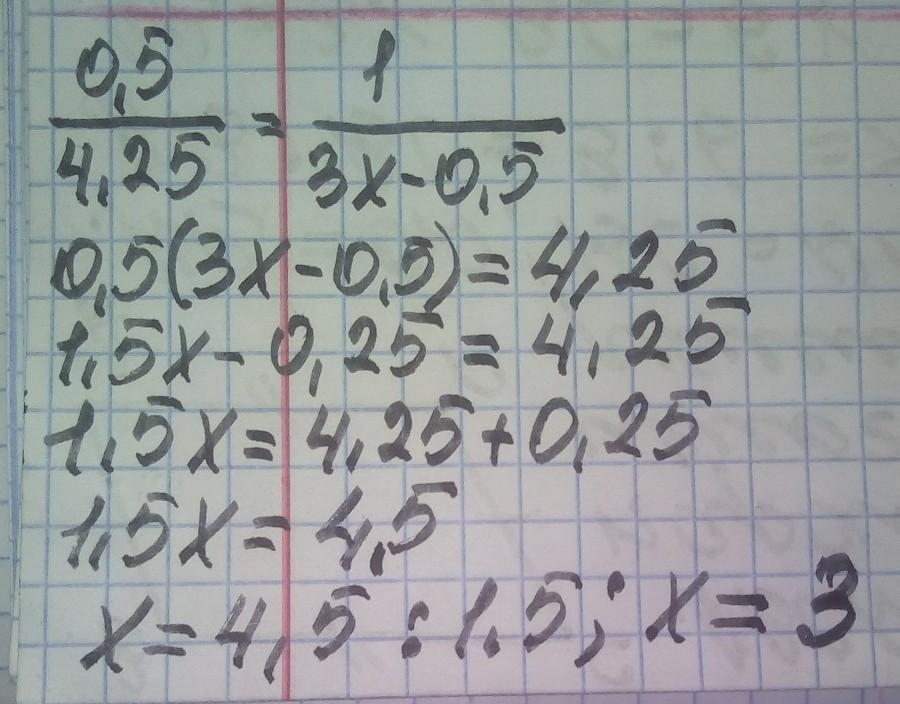 0,5 / 4,25 = 1 / 3x-0,5
0,5(3x-0,5)=4,25
1,5x-0,25=4,25
1,5x=4,25+0,25
1,5x=4,5
x=4,5:1.5; x=3